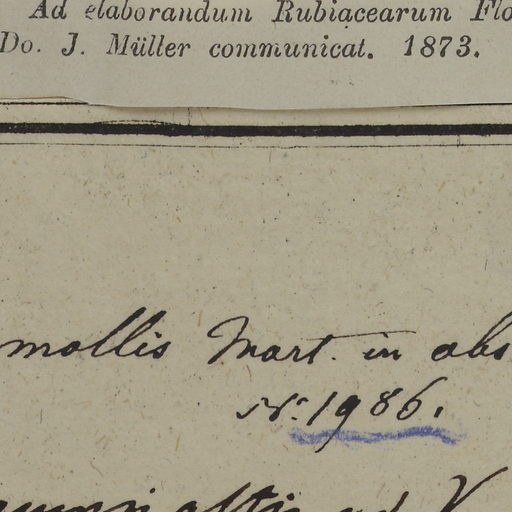 Ad elaborandum Rubiacearum Flo
Do. J. Müller communicat. 1873.
mollis Mart. in obs
Nr. 1986.
ad V